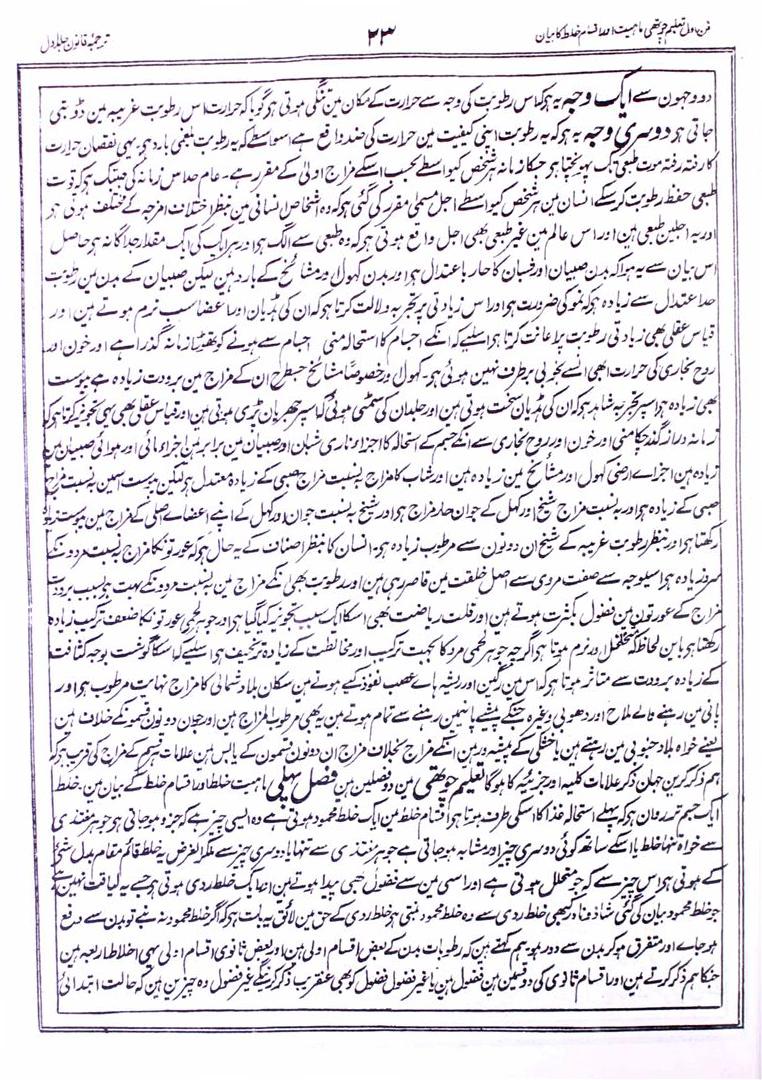 فن اول تعلیم چوتھی ماہیت اور اقسام خلط کا بیان
۲۳
ترجمۂ قانون جلد اول
دو وجہون سے ایک وجہ یہ ہو کہ اس رطوبت کی وجہ سے حرارت کے مکان مین تنگی ہوتی ہو گویا کہ حرارت اس رطوبت غریبہ مین ڈوبتی
جاتی ہو دوسری وجہ یہ ہو کہ یہ رطوبت اپنی کیفیت مین حرارت کی ضد واقع ہے اسواسطے کہ یہ رطوبت بلغمی بارد ہو یہی نقصان حرارت
کا رفتہ رفتہ موت طبعی تک پہونچتا ہو جسکا زمانہ ہر شخص کیواسطے بحسب اسکے مزاج اولیٰ کے مقرر ہے۔ عام ہے اس زمانہ کی جبتک کہ قوت
طبعی حفظ رطوبت کر سکے انسان مین ہر شخص کیواسطے اجل مسمیٰ مقرر کی گئی ہو کہ وہ اشخاص انسانی مین بنظر اختلاف امزجہ کے مختلف ہوتی ہو
اور یہ اجلین طبعی ہین اور اس عالم مین غیر طبعی بھی اجل واقع ہوتی ہو کہ وہ طبعی سے الگ ہو اور ہر ایک کی ایک مقدار جداگانہ ہو حاصل
اس بیان سے یہ ہوا کہ بدن صبیان اور فتیان کا حار باعتدال ہو اور بدن کہول اور مشائخ کے بارد ہین لیکن صبیان کے بدن مین رطوبت
حد اعتدال سے زیادہ ہو کہ نمو کی ضرورت ہو اور اس زیادتی پر تجربہ دلالت کرتا ہو کہ ان کی ہڈیان اور اعضا سب نرم ہوتے ہین اور
قیاس عقلی بھی زیادتی رطوبت پر اعانت کرتا ہو اسلیے کہ انکے اجسام کا استحالہ منی اجسام سے ہونے کو تھوڑا زمانہ گذرا ہے اور خون اور
روح بخاری کی حرارت ابھی انسے بخوبی برطرف نہین ہوئی ہو۔ کہول اور خصوصاً مشائخ جسطرح ان کے مزاج مین برودت زیادہ ہے یبوست
بھی زیادہ ہو اسپر تجربہ شاہد ہو کہ ان کی ہڈیان سخت ہوتی ہین اور جلد ان کی سمٹی ہوئی کہ اسپر جھریان پڑی ہوتی ہین اور قیاس عقلی بھی یہی تجویز کرتا ہو کہ
زمانہ دراز گذر چکا منی اور خون اور روح بخاری سے انکے جسم کے استحالہ کا اجزاء ناری شبان اور صبیان مین برابر ہین اجزاء مائی اور ہوائی صبیان مین
زیادہ ہین اجزاے ارضی کہول اور مشائخ مین زیادہ ہین اور شاب کا مزاج بہ نسبت مزاج صبی کے زیادہ معتدل ہو لیکن یبوست اسمین بہ نسبت مزاج
صبی کے زیادہ ہو اور بہ نسبت مزاج شیخ اور کہل کے جوان حار مزاج ہو اور شیخ بہ نسبت جوان اور کہل کے اپنے اعضاے اصلی کے مزاج مین یبوست زیادہ
رکھتا ہو اور بنظر رطوبت غریبہ کے شیخ ان دونون سے مرطوب زیادہ ہو۔ انسان کا بنظر اصناف کے یہ حال ہو کہ عورتونکا مزاج بہ نسبت مردونکے
سرد زیادہ ہو اسیوجہ سے صفت مردی سے اصل خلقت مین قاصر رہی ہین اور رطوبت بھی انکے مزاج مین بہ نسبت مردونکے بہت ہو بسبب برودت
مزاج کے عورتون مین فضول بکثرت ہوتے ہین اور قلت ریاضت بھی اسکا ایک سبب تجویز کیا گیا ہو اور جوہر لحمی عورتونکا ضعف ترکیب زیادہ
رکھتا ہو باین لحاظ کہ متخلخل اور نرم ہوتا ہو اگرچہ جوہر لحمی مرد کا بجہت ترکیب اور مخالطت کے زیادہ تر سخیف ہو اسلیے کہ اسکا گوشت بوجہ کثافت
کے زیادہ برودت سے متاثر ہوتا ہو کہ اس مین رگین اور ریشہ ہاے عصب نفوذ کیے ہوتے ہین سکان بلاد شمالی کا مزاج نہایت مرطوب ہو اور
پانی مین رہنے والے ملاح اور دھوبی وغیرہ جنکے پیشے پانیمین رہنے سے تمام ہوتے ہین یہ بھی مرطوب المزاج ہین اور جو ان دونون قسمونکے خلاف ہین
یعنے خواہ بلاد جنوبی مین رہتے ہین یا خشکی کے پیشہ ور ہین انکے مزاج بخلاف مزاج ان دونون قسمون کے یابس ہین علامات ہر قسم کے مزاج کی قریب ہو کہ
ہم ذکر کرین جہان ذکر علامات کلیہ اور جزئیہ کا ہوگا تعلیم چوتھی مین دو فصلین ہین فصل پہلی ماہیت خلط اور اقسام خلط کے بیان مین۔ خلط
ایک جسم تر اور روان ہو کہ پہلے استحالہ غذا کا اسکی طرف ہوتا ہو اقسام خلط مین ایک خلط محمود ہوتی ہے وہ ایسی چیز ہے کہ جزو ہو جاتی ہو جوہر مغتذی
سے خواہ تنہا خلط یا اسکے ساتھ کوئی دوسری چیز اور مشابہ ہو جاتی ہے جوہر مغتذی سے تنہا یا دوسری چیز سے ملکر الغرض یہ خلط قائم مقام بدل شئ
کے ہوتی ہو اس چیز سے کہ جو متحلل ہوتی ہے اور اسی مین سے فضول بھی پیدا ہوتے ہین اور ایک خلط ردی ہوتی ہو جسے یہ لیاقت نہین ہے
جو خلط محمود بیان کی گئی شاذ و نادر کبھی خلط ردی سے وہ خلط محمود بنتی ہو خلط ردی کے حق مین لائق یہ بات ہو کہ اگر خلط محمود نہ بنے تو بدن سے دفع
ہو جاے اور متفرق ہو کر بدن سے دور ہو ہم کہتے ہین کہ رطوبات بدن کے بعض اقسام اولیٰ ہین اور بعض ثانوی اقسام اولی یہی اخلاط اربعہ ہین
جنکا ہم ذکر کرتے ہین اور اقسام ثانوی کی دو قسمین ہین فضول ہین یا غیر فضول فضول کو بھی عنقریب ذکر کرینگے غیر فضول وہ چیزین ہین کہ حالت ابتدائی